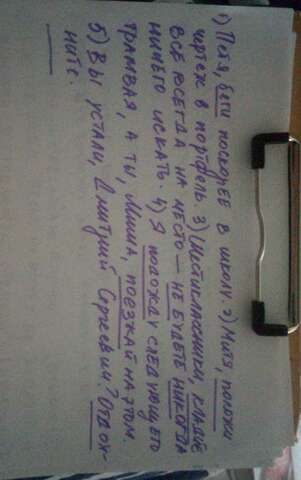 1) Петя, беги поскорее в школу. 2) Митя, положи
чертеж в портфель. 3) Шестиклассники, кладите
всё всегда на место — не будете никогда
ничего искать. 4) Я подожду следующего
трамвая, а ты, Миша, поезжай на этом.
5) Вы устали, Дмитрий Сергеевич? Отдох-
ните.